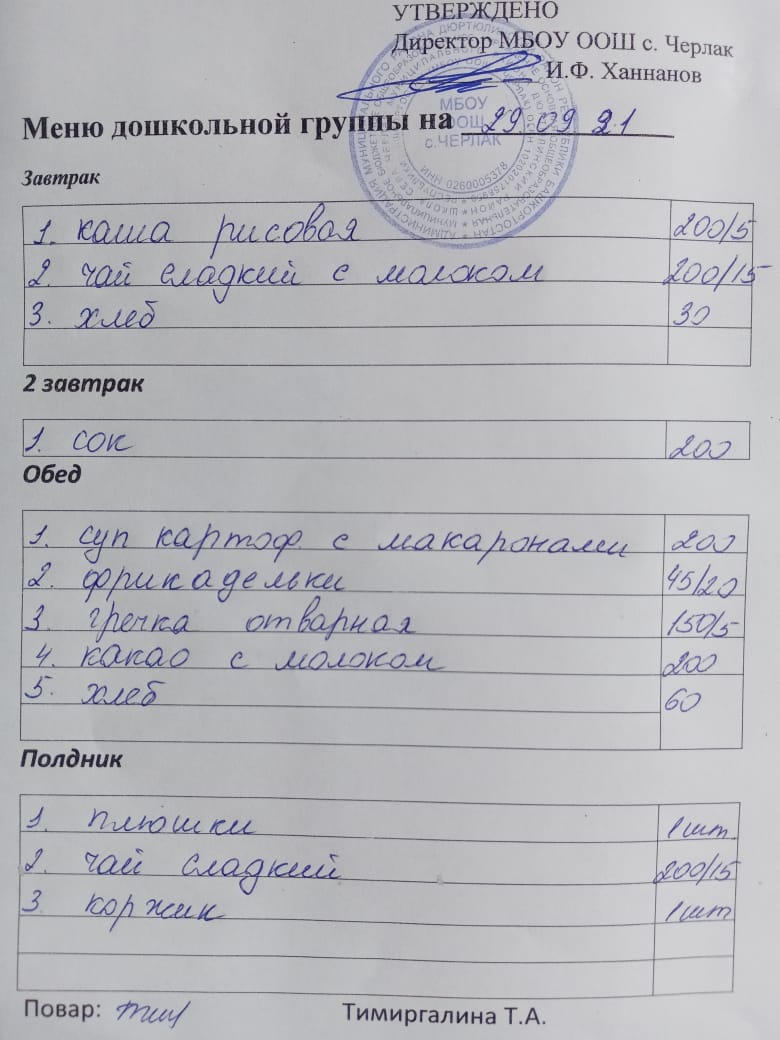 УТВЕРЖДЕНО
Директор МБОУ ООШ с. Черлак
И.Ф. Ханнанов
МБОУ
ООШ
с.ЧЕРЛАК
ИНН 0260005378
Меню дошкольной группы на 29.09 21
Завтрак
1. каша рисовая 200/5
2. чай сладкий с молоком 200/15
3. хлеб 30
2 завтрак
1. сок 200
Обед
1. суп картоф. с макаронами 200
2. фрикадельки 45/20
3. гречка отварная 150/5
4. какао с молоком 200
5. хлеб 60
Полдник
1. плюшки 1 шт.
2. чай сладкий 200/15
3 коржик 1 шт
Повар: Тимиргалина Т.А.